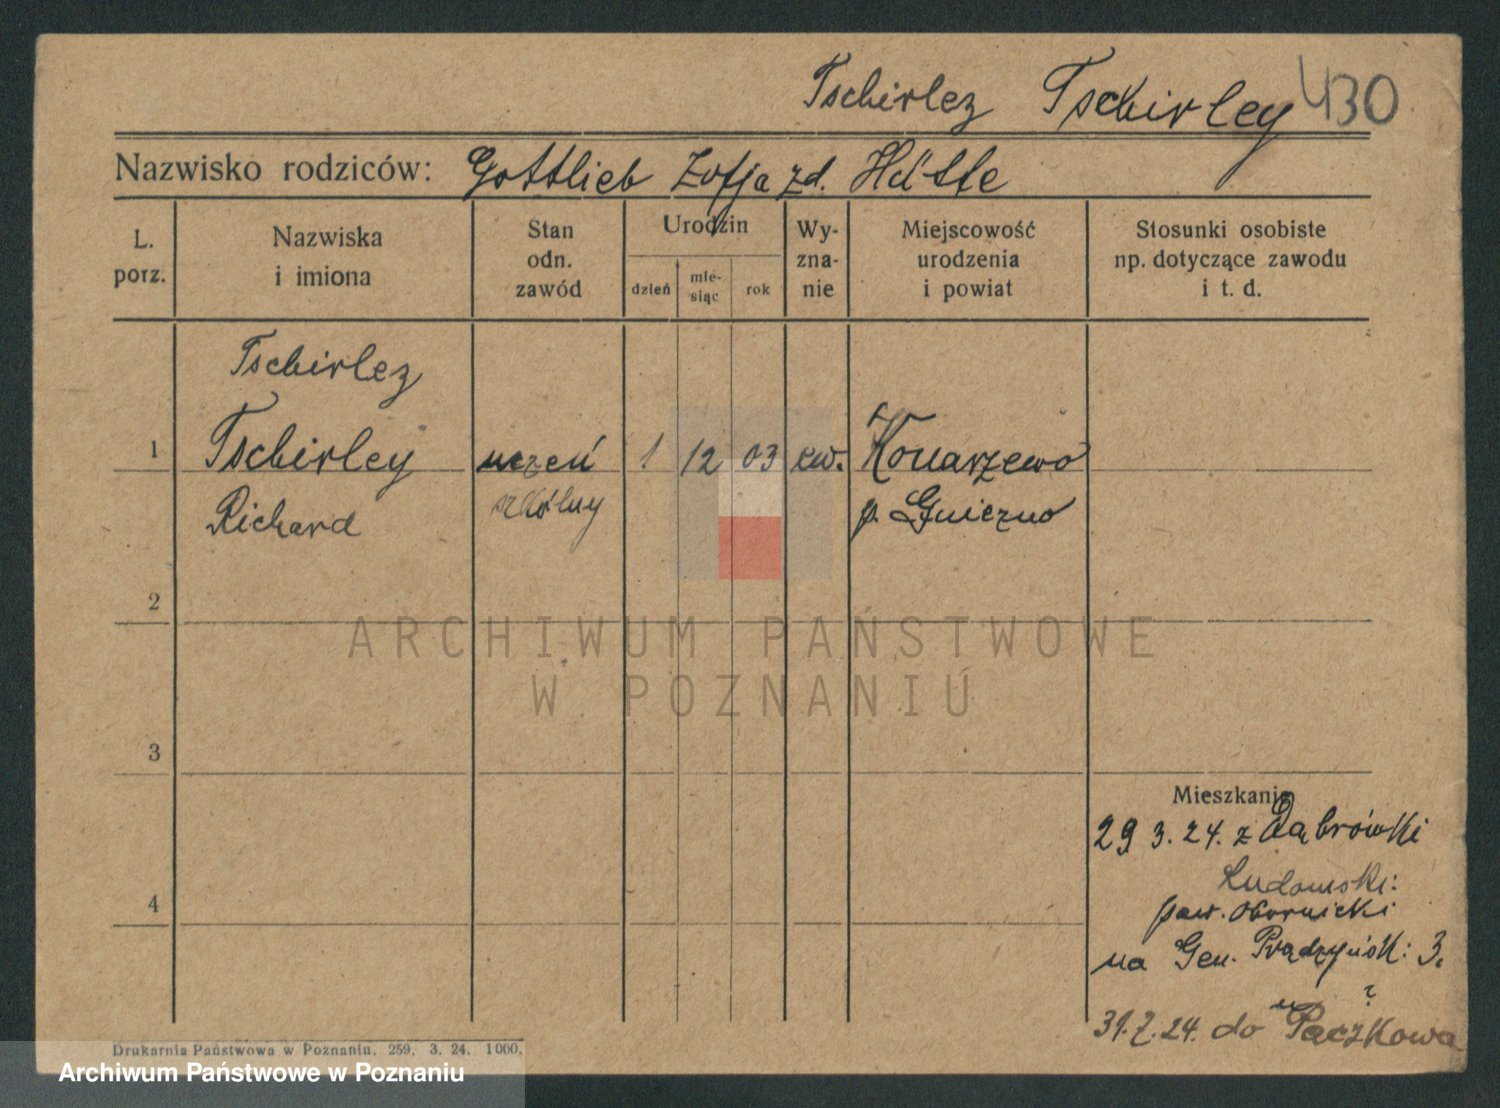 Tschirlez Tschirley 430
Nazwisko rodziców: Gottlieb Zofja zd. Hütte
L. porz.
Nazwiska i imiona
Stan odn. zawód
Urodzin
dzień
mie-
siąc
rok
Wy-
zna-
nie
Miejscowość
urodzenia
i powiat
Stosunki osobiste
np. dotyczące zawodu
i t. d.
Tschirlez
1 Tschirley uczeń 1 12 03 ew. Konarzewo
Richard szkólny p. Gniezno
2
ARCHIWUM PAŃSTWOWE
W POZNANIU
3
Mieszkanie
29 3. 24. z Dąbrówki
Ludomski:
4 pow. Obornicki
na Gen. Prądzyńsk: 3.
31.7.24. do Pączkowa
Drukarnia Państwowa w Poznaniu. 259. 3. 24. 1000.
Archiwum Państwowe w Poznaniu